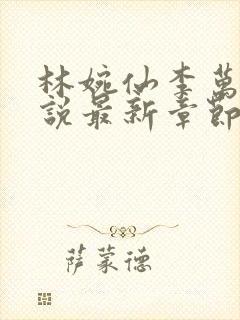 林婉仙李萬
說最新章節
萨蒙德